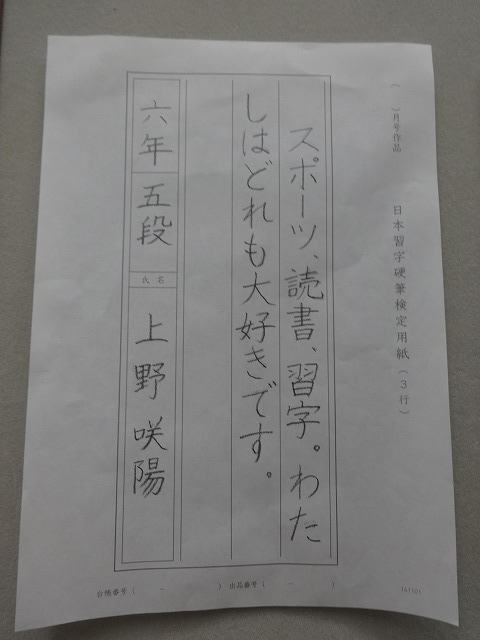 (　)月号作品
日本習字硬筆検定用紙(3行)
スポーツ、読書、習字。わた
しはどれも大好きです。
六年 五段 氏名 上野咲陽
台帳番号(　－　) 出品番号(　－　)